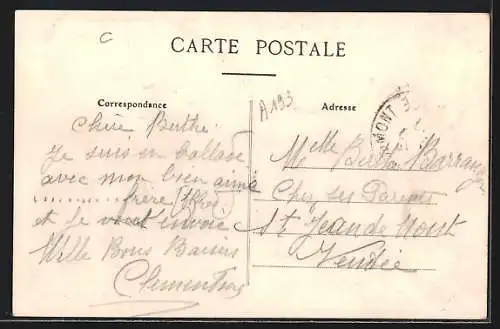 C
CARTE POSTALE
A193
Correspondance
Adresse
MONT
Chère Berthe
Je suis en ballade
avec mon bien aimé
frère
et Je vous envoie
Mille Bons Baisers
Clementine
Melle Berthe
Chez ses Parents
St Jean de Mont
Vendée